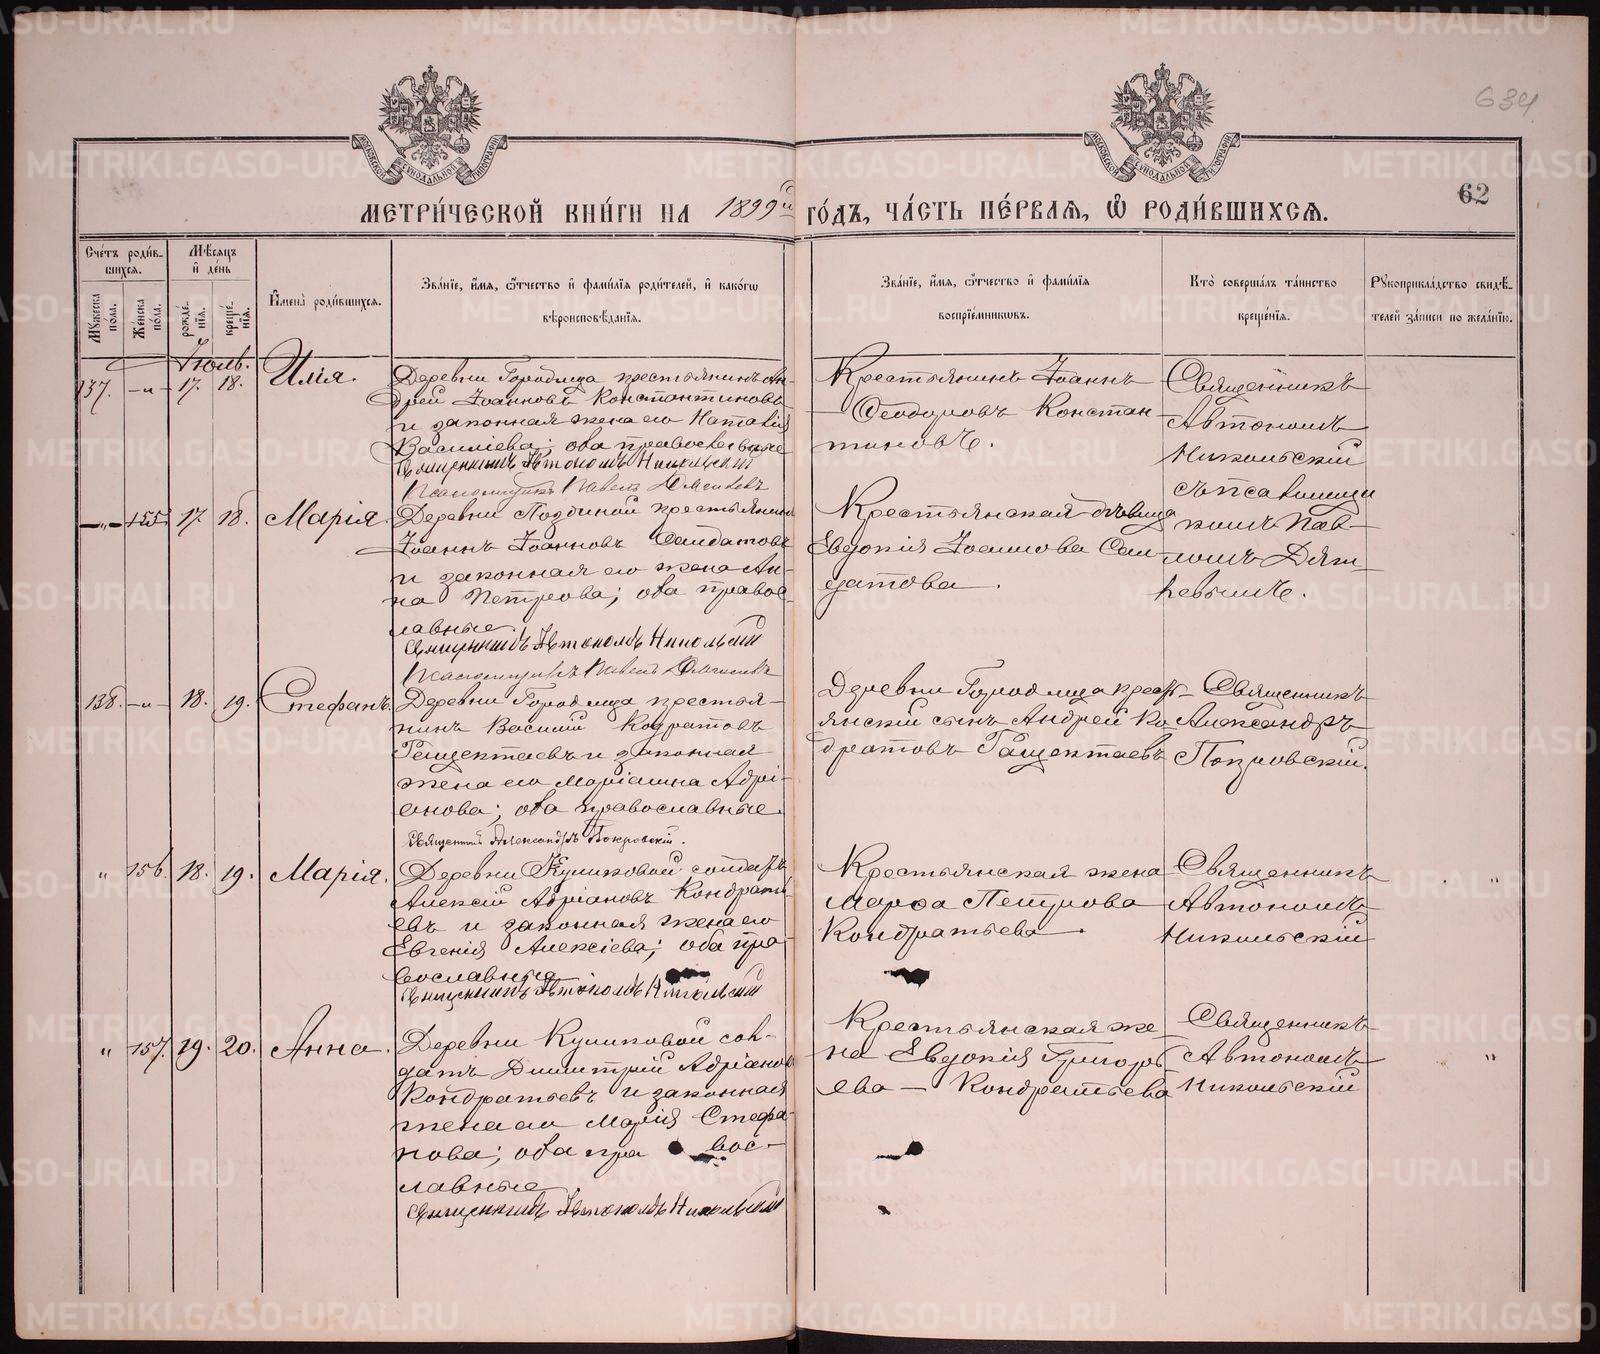 634.
62
МЕТРИ́ЧЕСКОЙ КНИ́ГИ НА 1899й го́дъ, ча́сть пе́рваѧ, ѡ҆ роди́вшихсѧ.
Сче́тъ роди́вшихсѧ.
Мꙋжеска по́ла.
Же́нска по́ла.
Мѣ́сѧцъ и҆ де́нь
рожде́нїѧ.
креще́нїѧ.
И҆мена̀ роди́вшихсѧ.
Зва́нїе, и҆́мѧ, ѻ҆́тчество и҆ фами́лїѧ роди́телей, и҆ како́гѡ
вѣроисповѣ́данїѧ.
Зва́нїе, и҆́мѧ, ѻ҆́тчество и҆ фами́лїѧ
воспрїе́мниковъ.
Кто̀ соверша́лъ та́инство
креще́нїѧ.
Рꙋкоприкла́дство свидѣ́телей за́писи по жела́нїю.
Іюль.
137. -„- 17. 18. Илія.
Деревни Городища крестьянинъ Ан-
дрей Іоанновъ Константиновъ
и законная жена его Наталія
Василіева; оба православные
Священникъ Автономъ Никольскій
Псаломщикъ Павелъ
Крестьянинъ Іоаннъ
Ѳеодоровъ Констан-
тиновъ.
Священникъ
Автономъ
Никольскій
съ псаломщи
комъ Пав-
ломъ
-„- 155 17. 18. Марія.
Деревни крестьянинъ
Іоаннъ Іоанновъ Солдатовъ
и законная его жена Ан-
на Петрова; оба правос-
лавные.
Священникъ Автономъ Никольскій
Псаломщикъ Павелъ
Крестьянская дѣвица
Евдокія Іоаннова Сол-
датова.
138. -„- 18. 19. Стефанъ.
Деревни Городища крестья-
нинъ Василій Кодратовъ
и законная
жена его Маріанна Адрі-
анова; оба православные.
Священникъ Александръ Покровскій.
Деревни Городища крест-
янскій сынъ Андрей Ко
дратовъ
Священникъ
Александръ
Покровскій.
„ 156. 18. 19. Марія.
Деревни Куликовой солдатъ
Алексій Адріановъ Кондрать
евъ и законная жена его
Евгенія Алексіева; оба пра-
вославные
Священникъ Автономъ Никольскій
Крестьянская жена
Марѳа Петрова
Кондратьева.
Священникъ
Автономъ
Никольскій
„
„ 157. 19. 20. Анна.
Деревни Куликовой сол-
датъ Димитрій Адріановъ
Кондратьевъ и законная
жена его Марія Стефа-
нова; оба пра вос-
лавные.
Священникъ Автономъ Никольскій
Крестьянская же
на Евдокія Григорь
ева - Кондратьева
Священникъ
Автономъ
Никольскій
„
METRIKI.GASO-URAL.RU